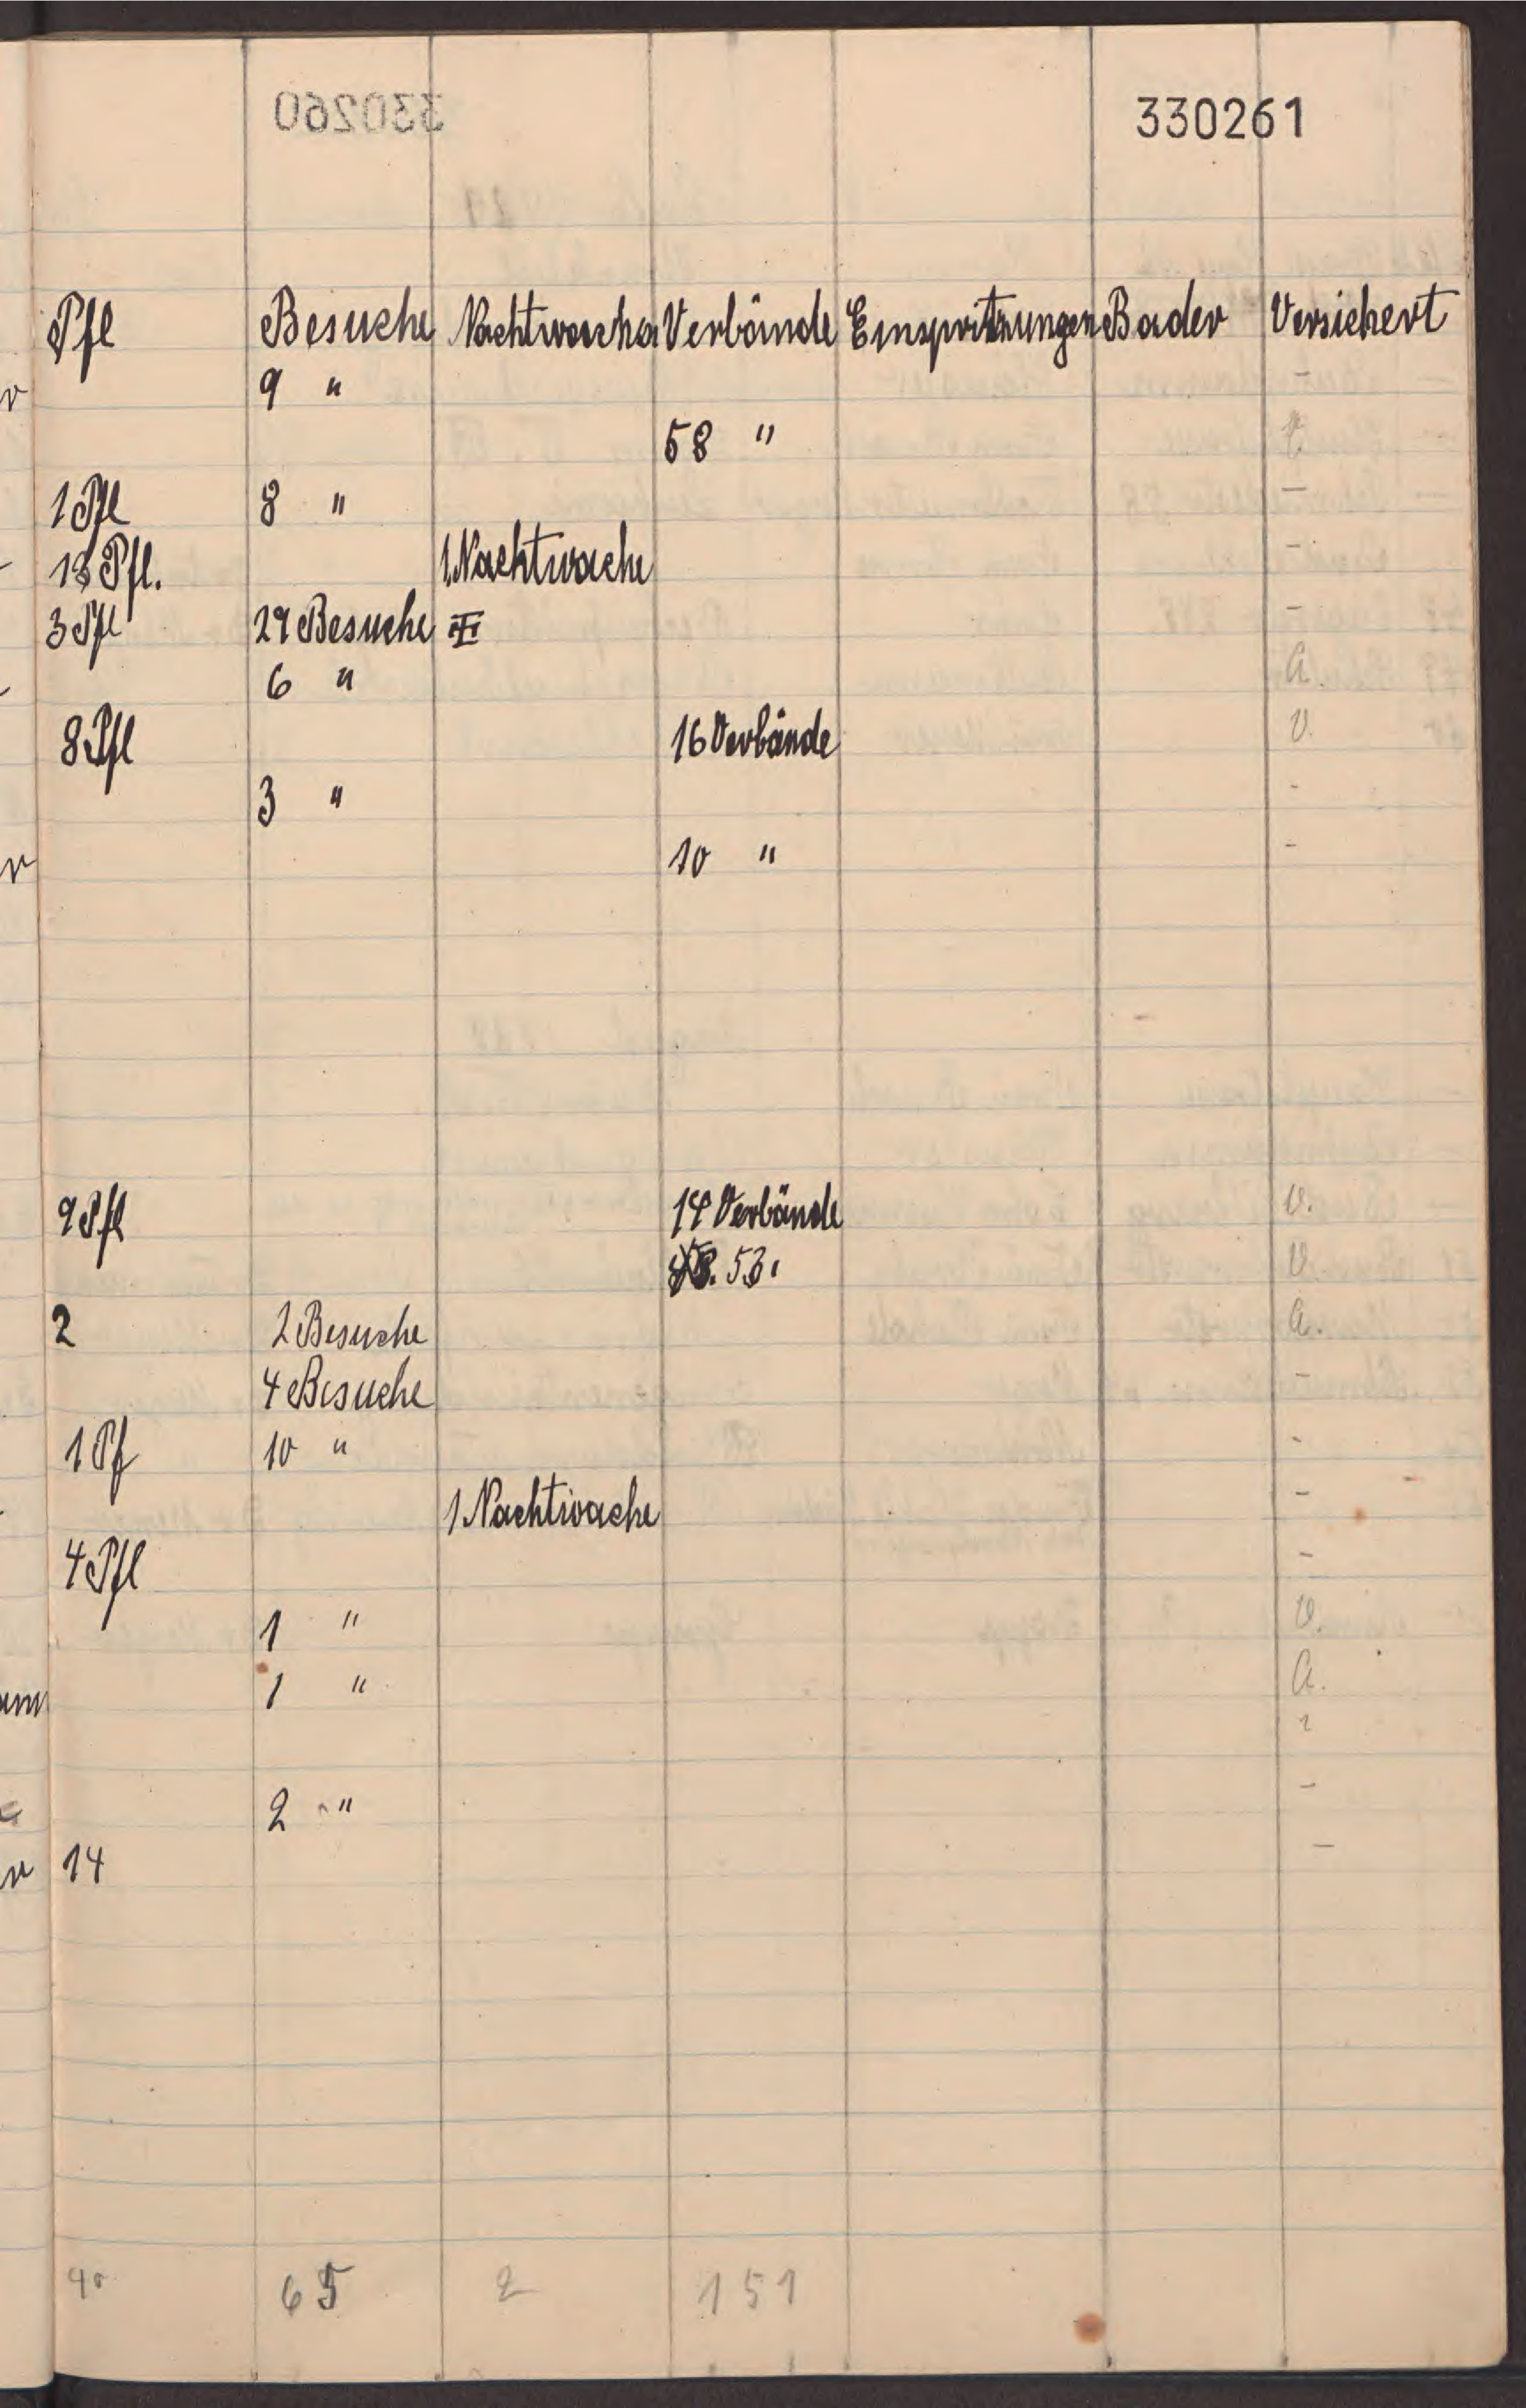 330261
Pfl Besuche Nachtwachen Verbände Einspritzungen Bader Versichert
9 " -
58 "
1 Pfl 8 " -
Pfl. 1 Nachtwache -
3 Pfl Besuche -
6 " A.
8 Pfl 16 Verbände V.
3 " -
10 " -
9 Pfl 14 Verbände V.
53 V.
2 2 Besuche A.
4 Besuche -
1 Pf 10 " -
1 Nachtwache -
4 Pfl -
1 " V.
1 " A.
2 " -
14 -
40 65 2 151